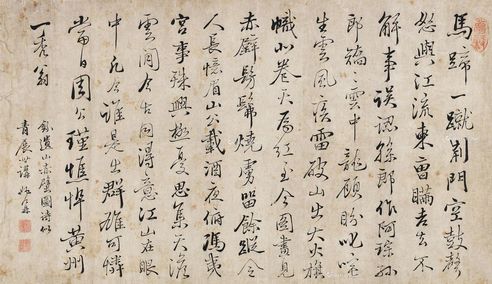 馬蹄一蹴荆門空鼓聲
怒與江流東曹瞞老去不
解事誤認孫郎作阿琮孫
郎矯々雲中龍顧盼叱咤
生雲風疾雷破山出大火旗
幟北卷天為紅至今圖畫見
赤壁髣髴燒虜留餘蹤令
人長憶眉山公載酒夜俯馮夷
宮事殊興極憂思集天澹
雲閒今古同得意江山在眼
中凡今誰是出群雄可憐
當日周公瑾憔悴黄州
一秃翁
錄遺山赤壁圖詩似
青展世講